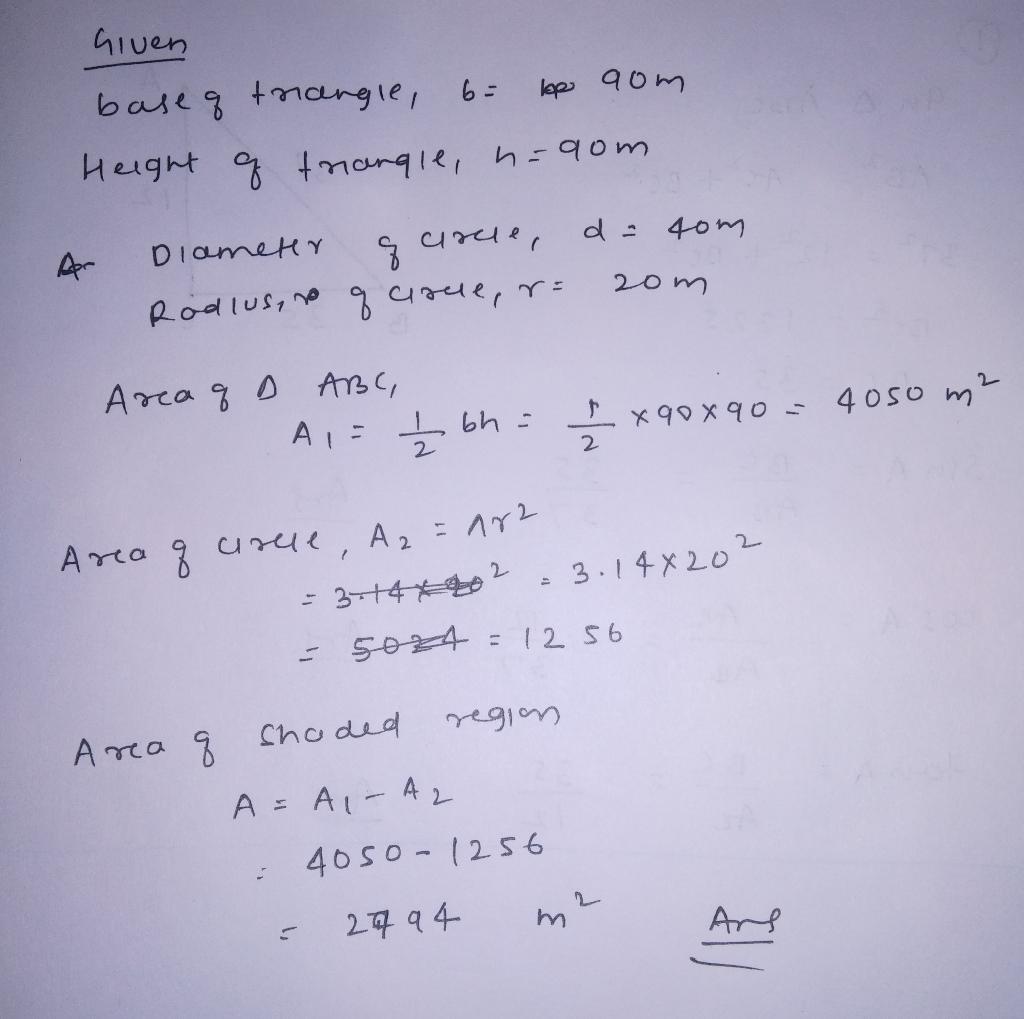 Given
base of triangle, b = 90m
Height of triangle, h = 90m
Diameter of circle, d = 40m
Radius, of circle, r = 20m
Area of Δ ABC,
A1 = 1/2 bh = 1/2 × 90 × 90 = 4050 m²
Area of circle, A2 = πr²
= 3.14 × 20² = 3.14 × 20²
= 5024 = 1256
Area of shaded region
A = A1 - A2
= 4050 - 1256
= 2794 m² Ans